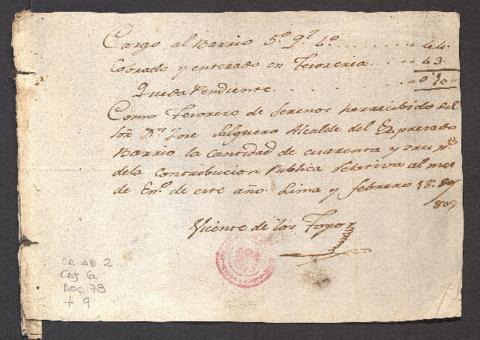 Cargo al Barrio 5º qº 4º ........ 44.
Cobrado y enterado en Tesoreria .... 43.
Queda Pendiente
Como Tesorero de Serenos he rrecibido del
Sor Dn Jose Salguero Alcalde del Expresado
Barrio la Cantidad de cuarenta y tres ps
de la Contribucion Publica respectiva al mes
de Enº de este año. Lima y febrero 18. de
809
Vicente de los
CA AD 2
CAJ 6
DOC 78
f 9